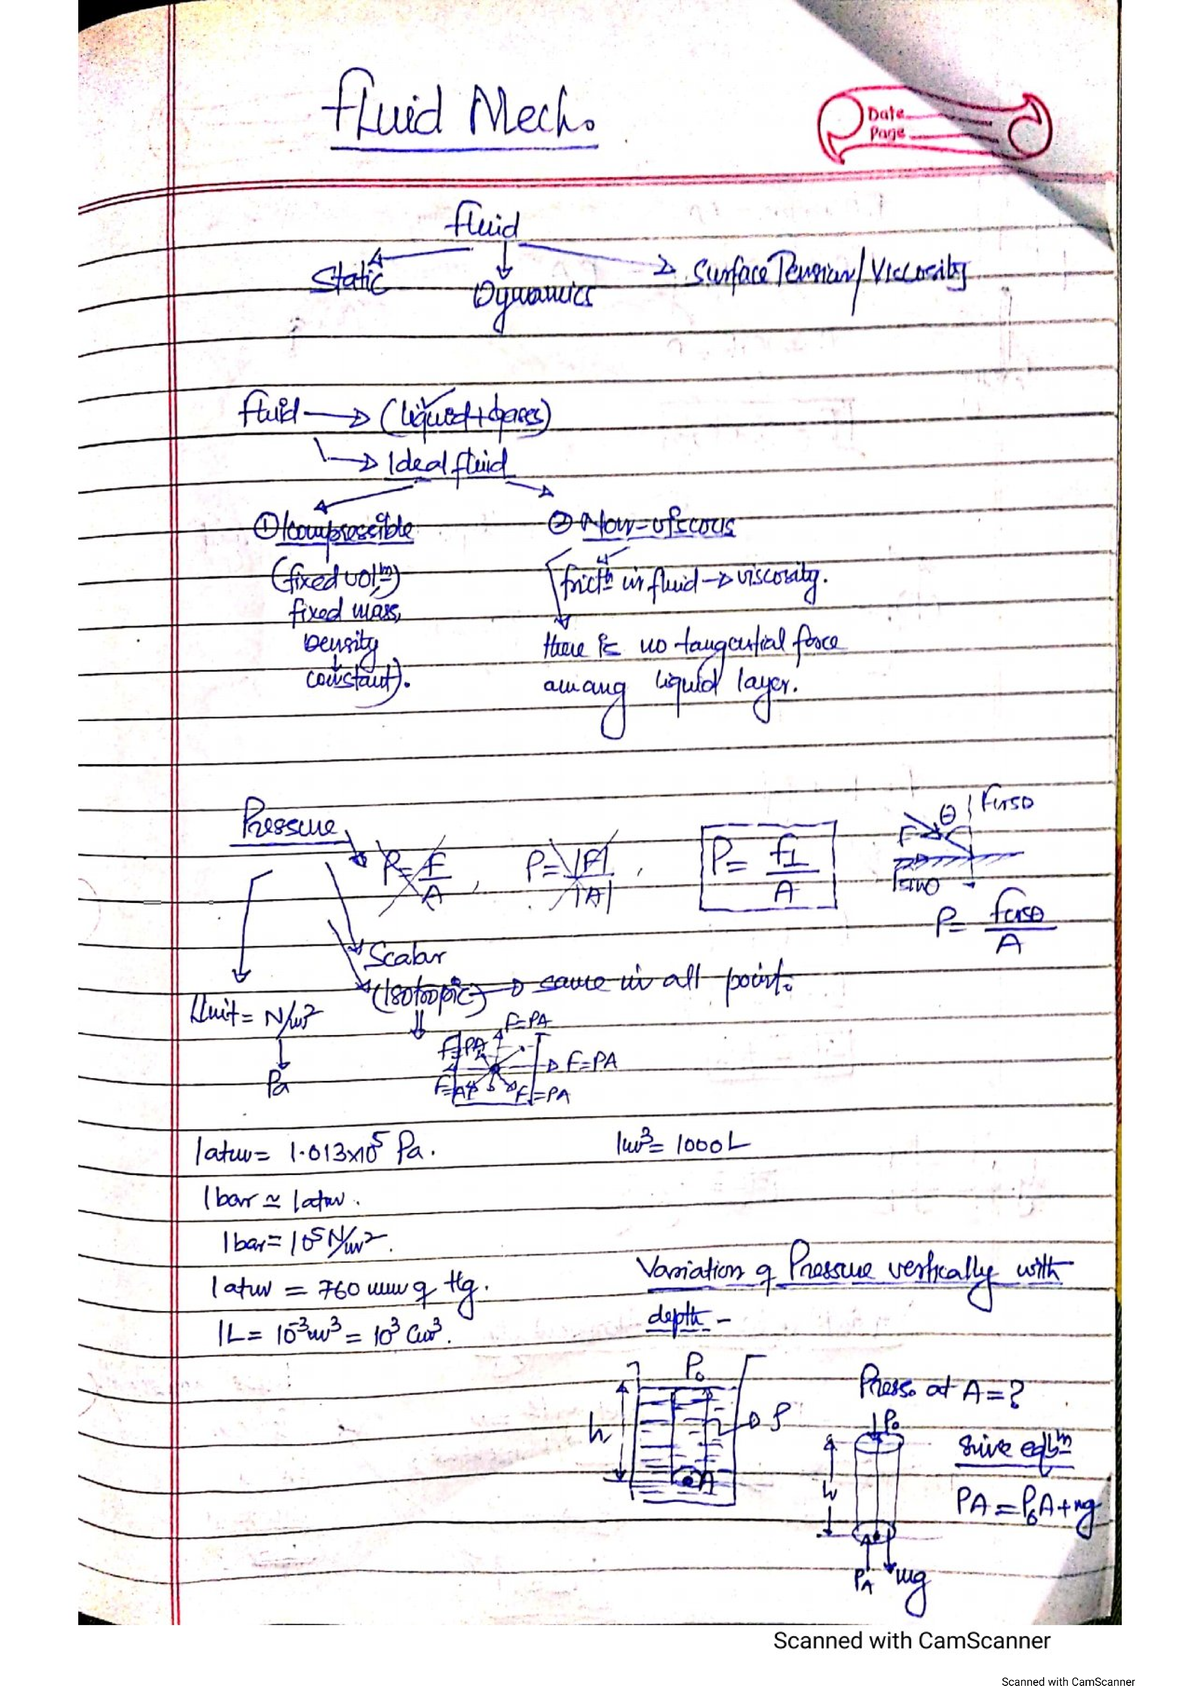 Fluid Mech.
Date
Page
fluid
Static
Dynamics
Surface Tension/Viscosity
fluid → (liquid + gases)
→ Ideal fluid
① Incompressible
② Non-viscous
(fixed volm)
fixed mass,
Density
constant).
frictn in fluid → viscosity.
there is no tangential force
among liquid layer.
Pressure
P = F/A , P = |F|/|A| , P = F⊥/A
θ Fcosθ
F
Fsinθ
P = Fcosθ/A
Scalar
(Isotropic) → same in all point.
Unit = N/m²
Pa
F=PA
F=PA
F=PA
F=PA
F=PA
1atm = 1.013×10⁵ Pa.
1m³ = 1000L
1bar ≃ 1atm.
1bar = 10⁵ N/m².
1atm = 760 mm of Hg.
1L = 10⁻³m³ = 10³ cm³.
Variation of Pressure vertically with
depth -
P₀
h
ρ
A
Press. at A = ?
P₀
h
Since eqbm
PA = P₀A + mg
PA
mg
Scanned with CamScanner
Scanned with CamScanner